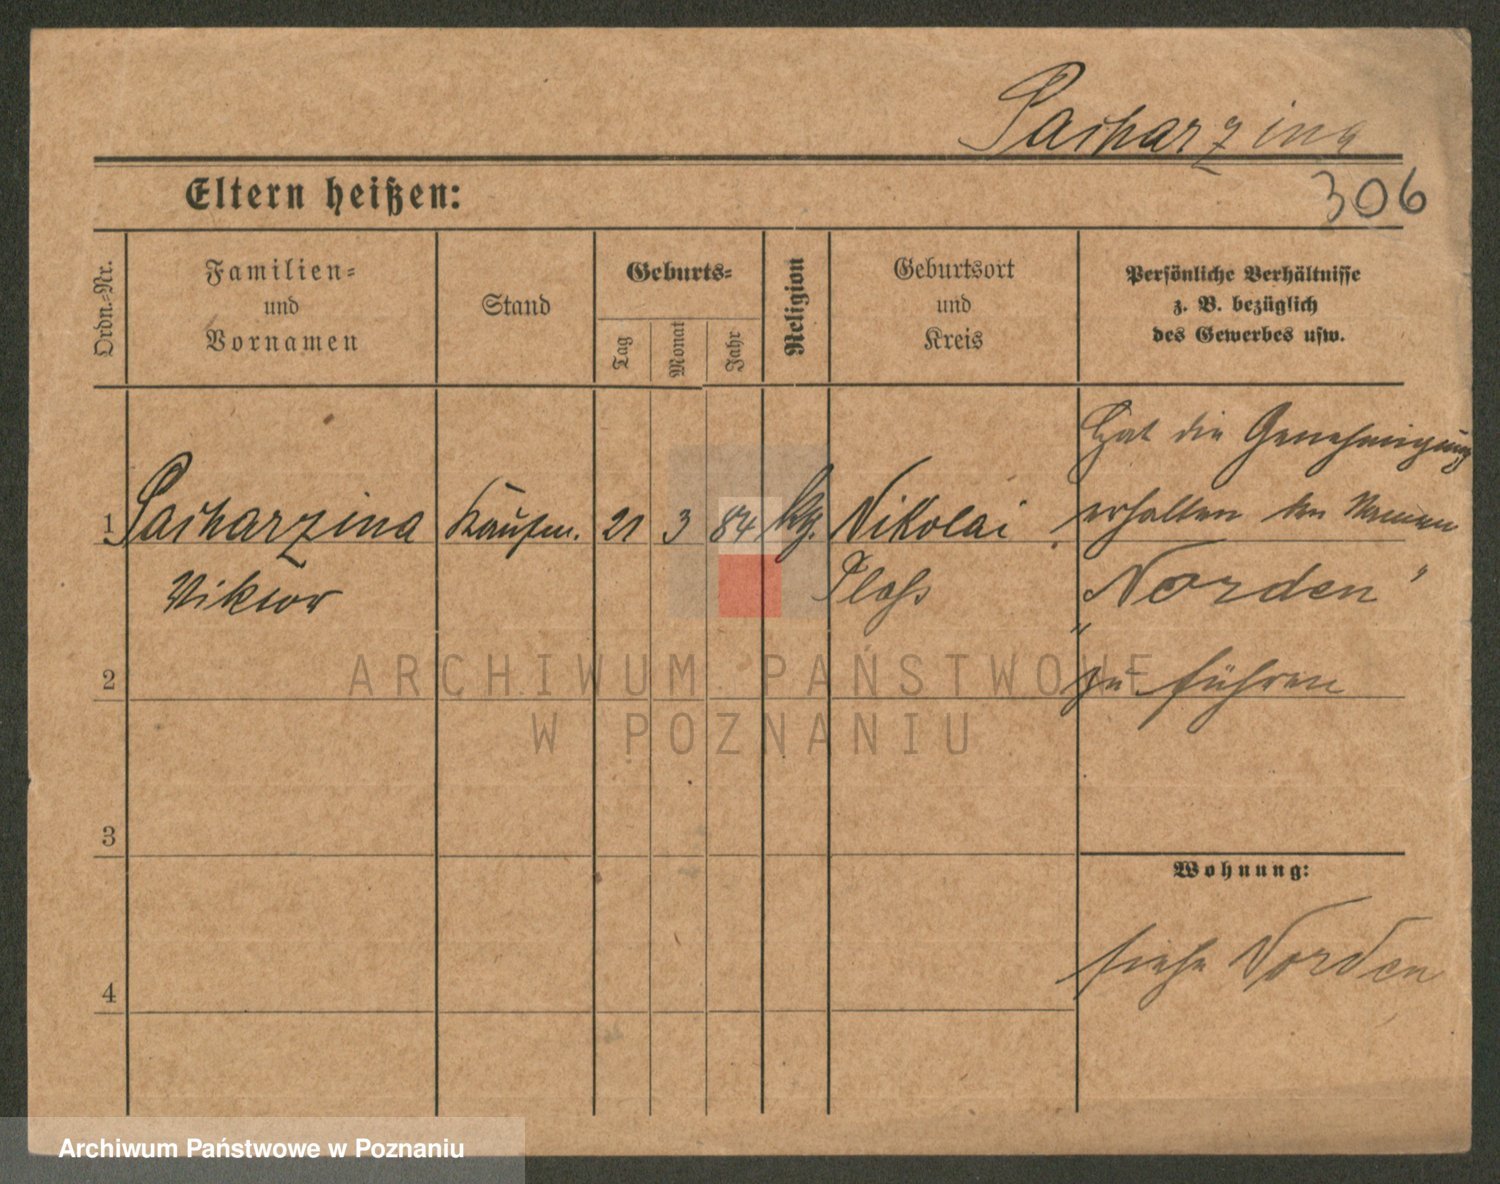 Pacharzina
306
Eltern heißen:
Ordn.-Nr.
Familien-
und
Vornamen
Stand
Geburts-
Tag
Monat
Jahr
Religion
Geburtsort
und
Kreis
Persönliche Verhältnisse
z. B. bezüglich
des Gewerbes usw.
Hat die Genehmigung
1 Pacharzina Kaufm. 21 3 84 Nikolai erhalten den Namen
Viktor Pleß „Norden“
2 zu führen
3
Wohnung:
siehe Norden
4
ARCHIWUM PAŃSTWOWE
W POZNANIU
Archiwum Państwowe w Poznaniu